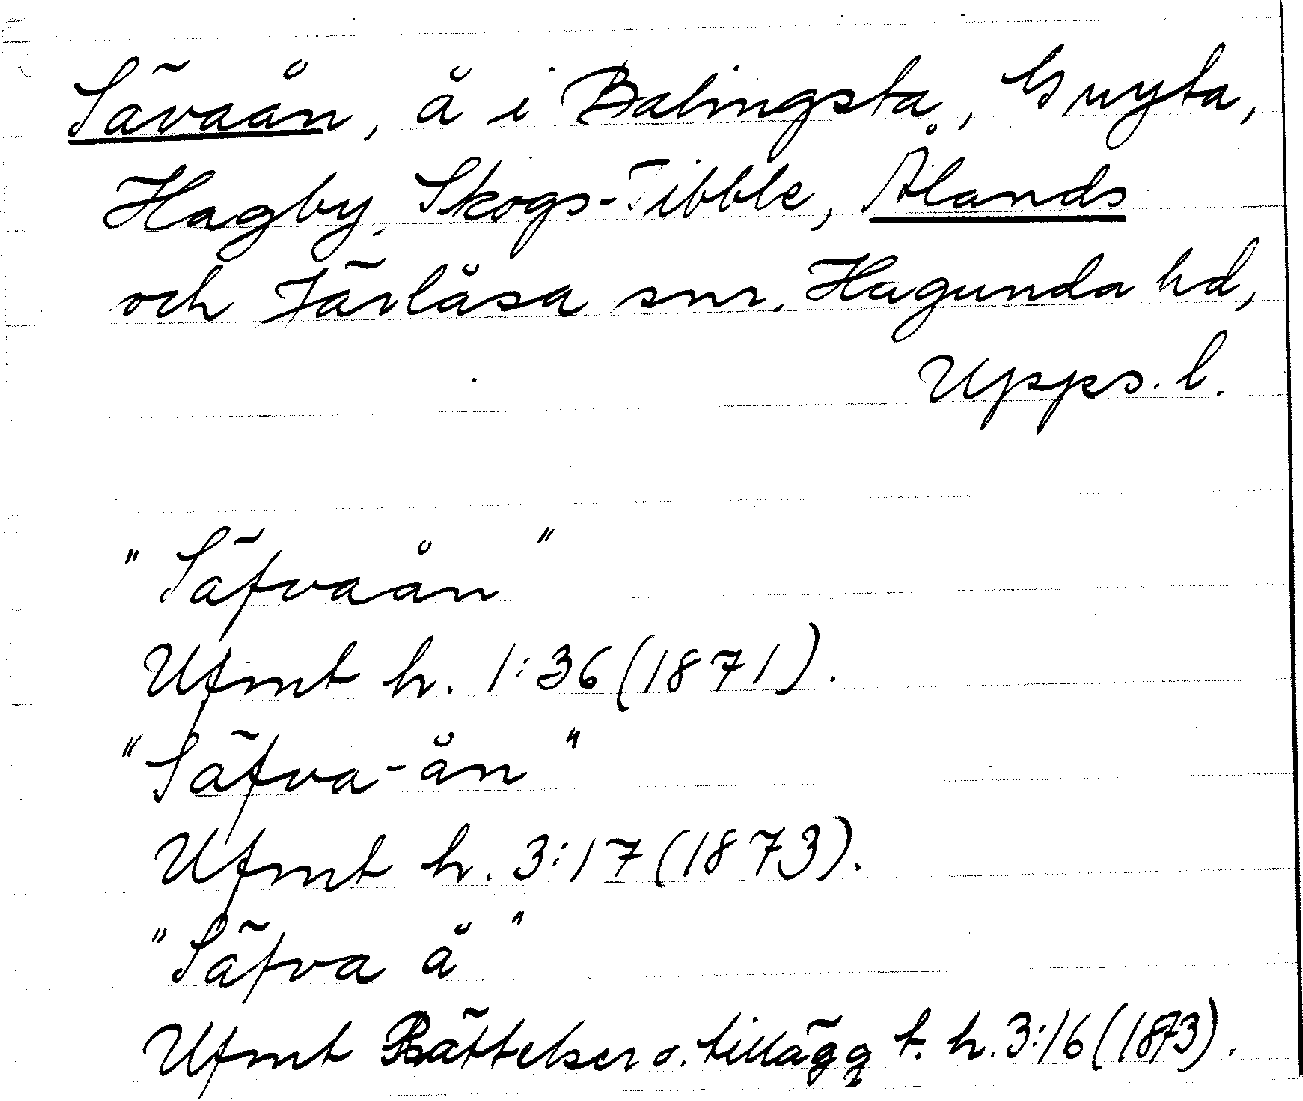 Sävaån, å i Balingsta, Gryta,
Hagby, Skogs-Tibble, Ålands
och Järlåsa snr. Hagunda hd,
Upps. l.
"Säfvaån"
Ufmt h. 1:36 (1871).
"Säfva-ån"
Ufmt h. 3:17 (1873).
"Säfva å"
Ufmt Rättelser o. tillägg t. h. 3:16 (1873).